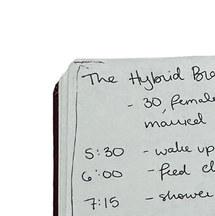 The Hybrid Bre
- 30, female
married
5:30 - wake up
6:00 - feed
7:15 - shower